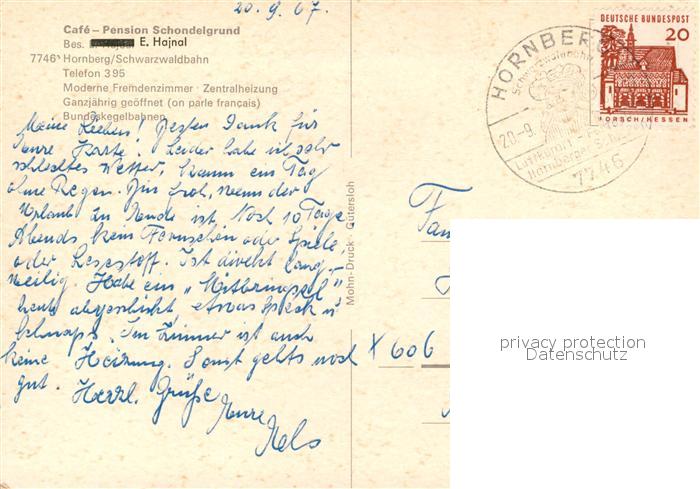 20.9.67.
Café - Pension Schondelgrund
Bes. E. Hajnal
7746 Hornberg/Schwarzwaldbahn
Telefon 395
Moderne Fremdenzimmer · Zentralheizung
Ganzjährig geöffnet (on parle français)
Bundeskegelbahnen
Meine Lieben! Besten Dank für
Eure Karte. Leider habe ich sehr
schlechtes Wetter, kaum ein Tag
ohne Regen. Bin froh, wenn der
Urlaub zu Ende ist. Noch 10 Tage.
Abends kein Fernsehen oder Spiele
oder Lesestoff. Ist direkt lang-
weilig. Habe ein „Mitbringsel"
heute abgeschickt, etwas Speck u.
Schnaps. Im Zimmer ist auch
keine Heizung. Sonst gehts noch
gut. Herzl. Grüße
Eure
Mohn-Druck · Gütersloh
HORNBERG
Schwarzwaldbahn
20.-9.
Luftkurort
Hornberger
7746
DEUTSCHE BUNDESPOST
20
LORSCH/HESSEN
Fam
X 606
privacy protection
Datenschutz